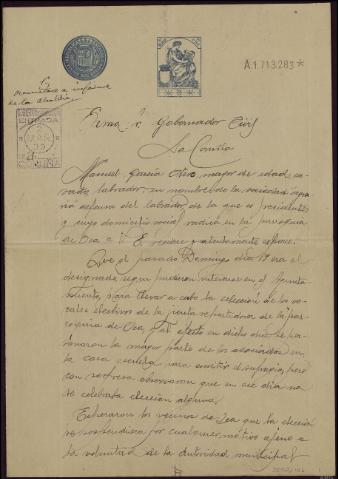 A.1.713.283*
informe
de la Alcaldía
Exmo Sr Gobernador Civil
La Coruña
Manuel García Otero mayor de edad ca-
sado, labrador, en nombre de la sociedad agra-
ria defensa del labrador de la que es presidente
y cuyo domicilio social radica en la parroquia
de Oza a V. E. respetuosamente expone:
Que el pasado Domingo día 19 era el
designado, segun hicieron enterarse en el Ayunta-
miento, para llevar a cabo la elección de los vo-
cales electivos de la junta repartidora de la pa-
rroquia de Oza, y al efecto en dicho día se per-
sonaron la mayor parte de los asociados en
la casa escuela para emitir el sufragio, pero
con sorpresa observaron que en ese día no
se celebraba elección alguna.
los vecinos de Oza que la elección
se suspendiera por cualquier motivo ajeno a
la voluntad de la autoridad municipal